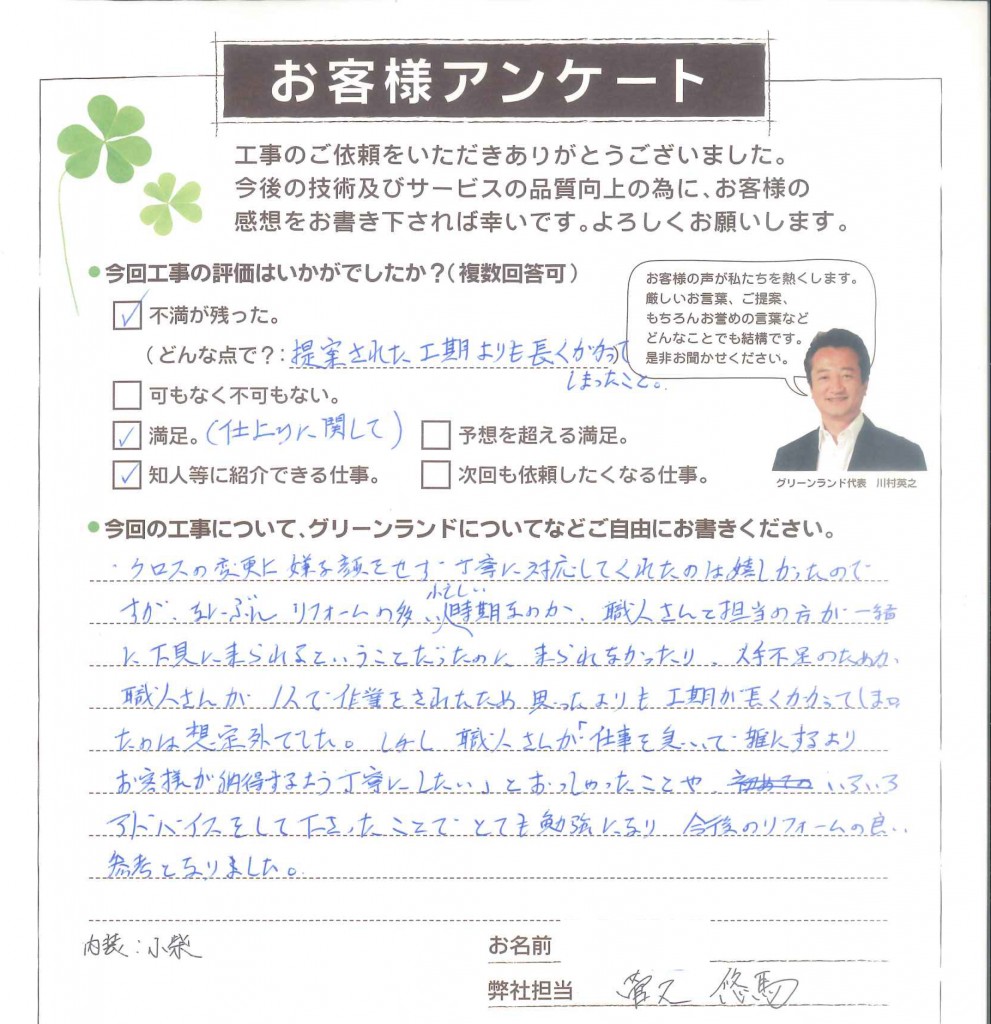 お客様アンケート
工事のご依頼をいただきありがとうございました。
今後の技術及びサービスの品質向上の為に、お客様の
感想をお書き下されば幸いです。よろしくお願いします。
●今回工事の評価はいかがでしたか？（複数回答可）
お客様の声が私たちを熱くします。
厳しいお言葉、ご提案、
もちろんお誉めの言葉など
どんなことでも結構です。
是非お聞かせください。
グリーンランド代表　川村英之
✓ 不満が残った。
（どんな点で？：提案された工期よりも長くかかって
しまったこと。
可もなく不可もない。
✓ 満足。（仕上りに関して）
予想を超える満足。
✓ 知人等に紹介できる仕事。
次回も依頼したくなる仕事。
●今回の工事について、グリーンランドについてなどご自由にお書きください。
・クロスの変更に嫌な顔をせず丁寧に対応してくれたのは嬉しかったので
忙しい
すが、なにぶん リフォームの多い時期なのか、職人さんと担当の方が一緒
に下見に来られるということだったのに 来られなかったり、人手不足のためか
職人さんが 1人で作業をされたため 思ったよりも工期が長くかかってしまっ
たのは想定外でした。しかし 職人さんが「仕事を急いで雑にするより
お客様が納得するよう丁寧にしたい」とおっしゃったことや いろいろ
アドバイスをして下さったことで とても勉強になり 今後のリフォームの良い
参考となりました。
内装：小柴
お名前
弊社担当 菅又 悠馬